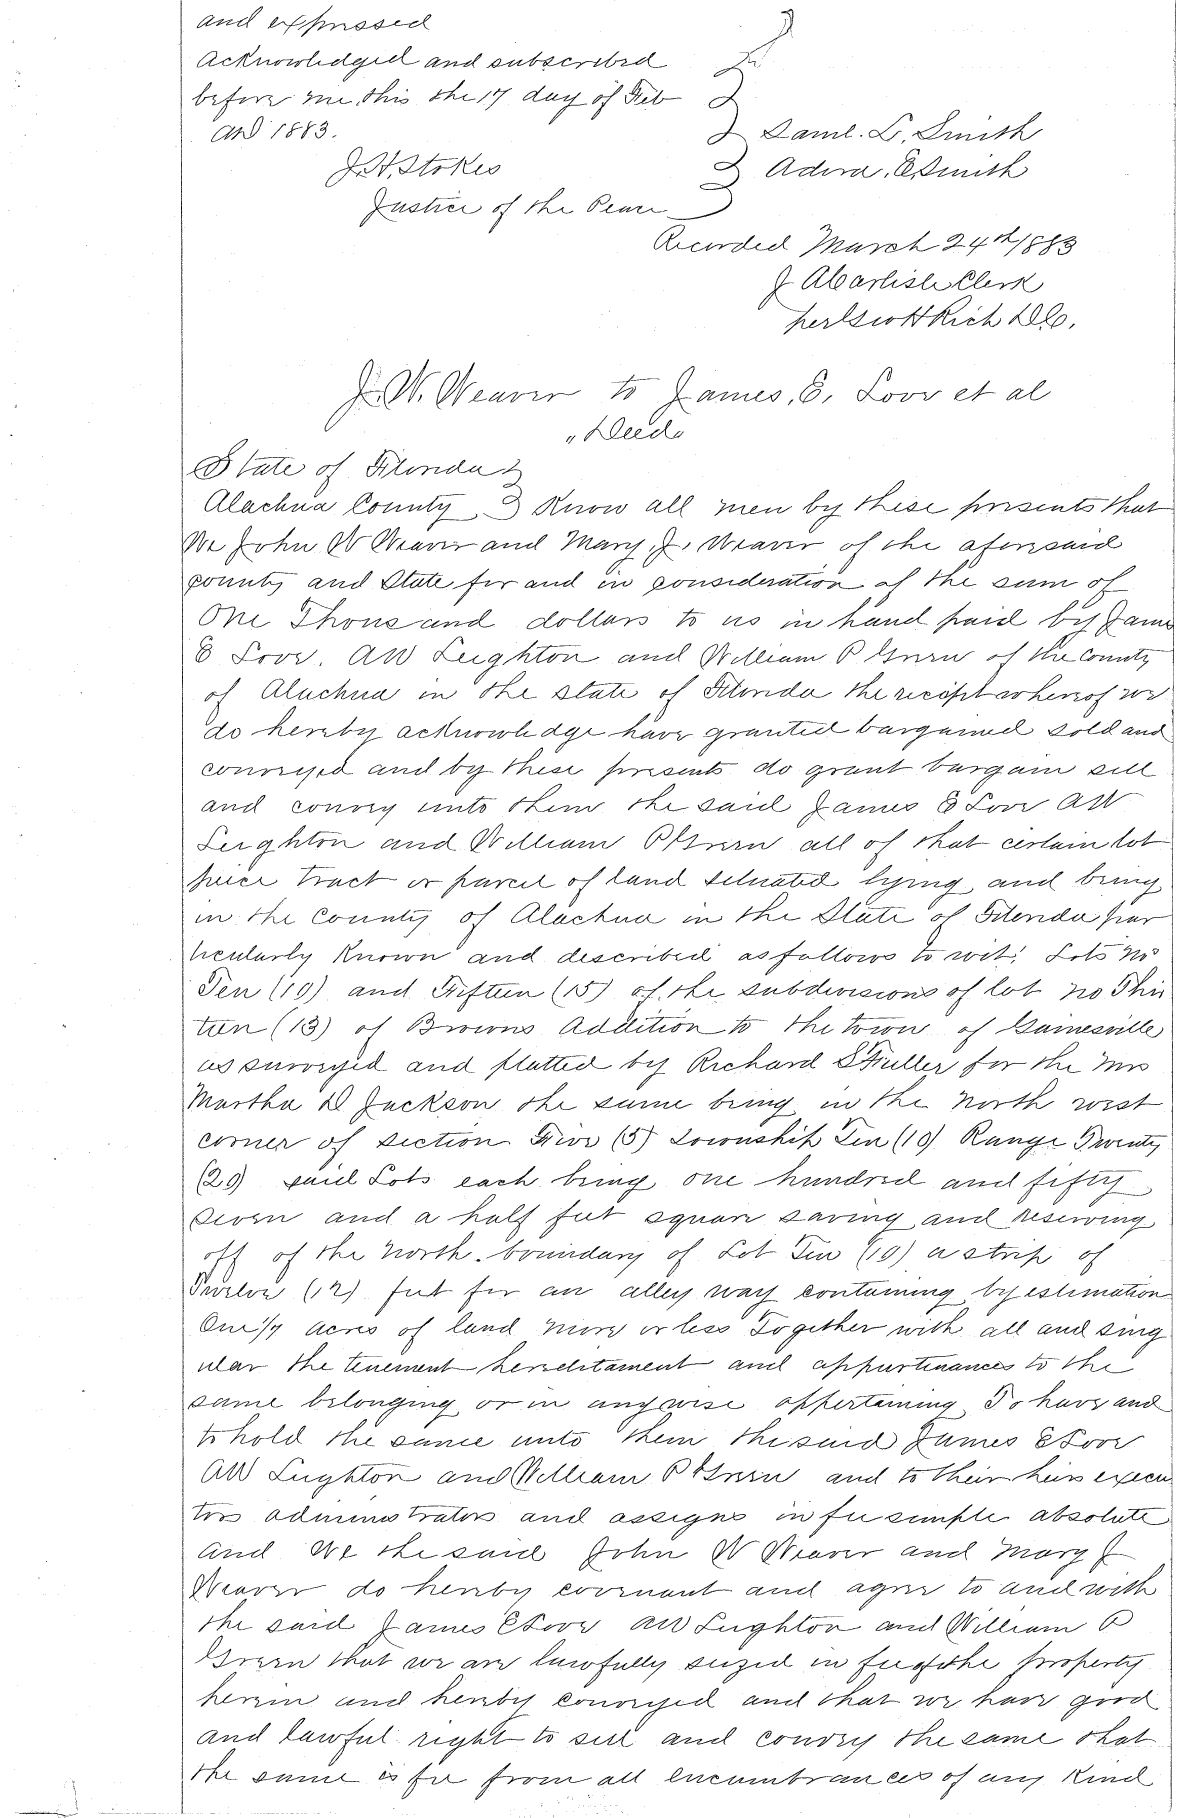 and expressed
Acknowledged and subscribed
before me this the 17 day of Feb
AD 1883.
Saml. L. Smith
J.H. Stokes
Adora. E Smith
Justice of the Peace
Recorded March 24th 1883
J A Carlisle Clerk
per Scott Rich D.C.
J. W. Weaver to James. E. Love et al
"Deed"
State of Florida
Alachua County Know all men by these presents that
We John W Weaver and Mary. J. Weaver of the aforesaid
county and State for and in consideration of the sum of
One Thousand dollars to us in hand paid by James
E Love. AW Leighton and William P Green of the County
of Alachua in the state of Florida the reciept whereof we
do hereby acknowledge have granted bargained sold and
conveyed and by these presents do grant bargain sell
and convey unto them the said James E Love AW
Leighton and William P Green all of that certain lot
piece tract or parcel of land situated lying and being
in the County of Alachua in the State of Florida par
ticularly Known and described as follows to wit: Lots No
Ten (10) and Fifteen (15) of the subdivisions of lot no Thir
teen (13) of Browns Addition to the town of Gainesville
as surveyed and platted by Richard S Fuller for the Mrs
Martha D Jackson the same being in the North west
corner of section Five (5) Township Ten (10) Range Twenty
(20) said Lots each being one hundred and fifty
seven and a half feet square saving and reserving
off of the North boundary of Lot Ten (10) a strip of
Twelve (12) feet for an alley way containing by estimation
acres of land more or less Together with all and sing
ular the tenement hereditament and appurtinances to the
same belonging or in anywise appertaining To have and
to hold the same unto them the said James E Love
AW Leighton and William P Green and to their heirs execu
tors administrators and assigns in fee simple absolute
And We the said John W Weaver and Mary J
Weaver do hereby covenant and agree to and with
the said James E Love AW Leighton and William P
Green that we are lawfully seized in fee of the property
herein and hereby conveyed and that we have good
and lawful right to sell and convey the same that
the same is free from all encumbrances of any Kind